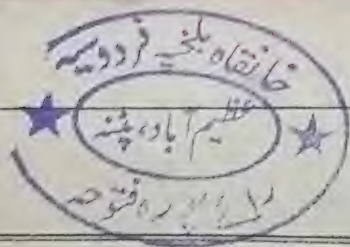 خانقاہ بلخی فردوسیہ
عظیم آباد، پٹنہ
فتوحہ